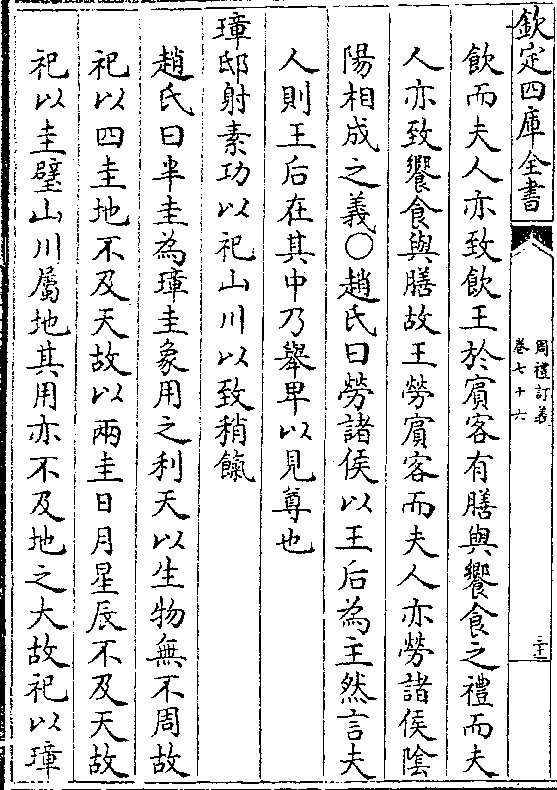 欽定四庫全書
周禮訂義
卷七十六
二十一
飲而夫人亦致飲王於賓客有膳與饗食之禮而夫
人亦致饗食與膳故王勞賓客而夫人亦勞諸侯陰
陽相成之義○趙氏曰勞諸侯以王后為主然言夫
人則王后在其中乃舉卑以見尊也
璋邸射素功以祀山川以致稍餼
趙氏曰半圭為璋圭象用之利天以生物無不周故
祀以四圭地不及天故以兩圭日月星辰不及天故
祀以圭璧山川屬地其用亦不及地之大故祀以璋